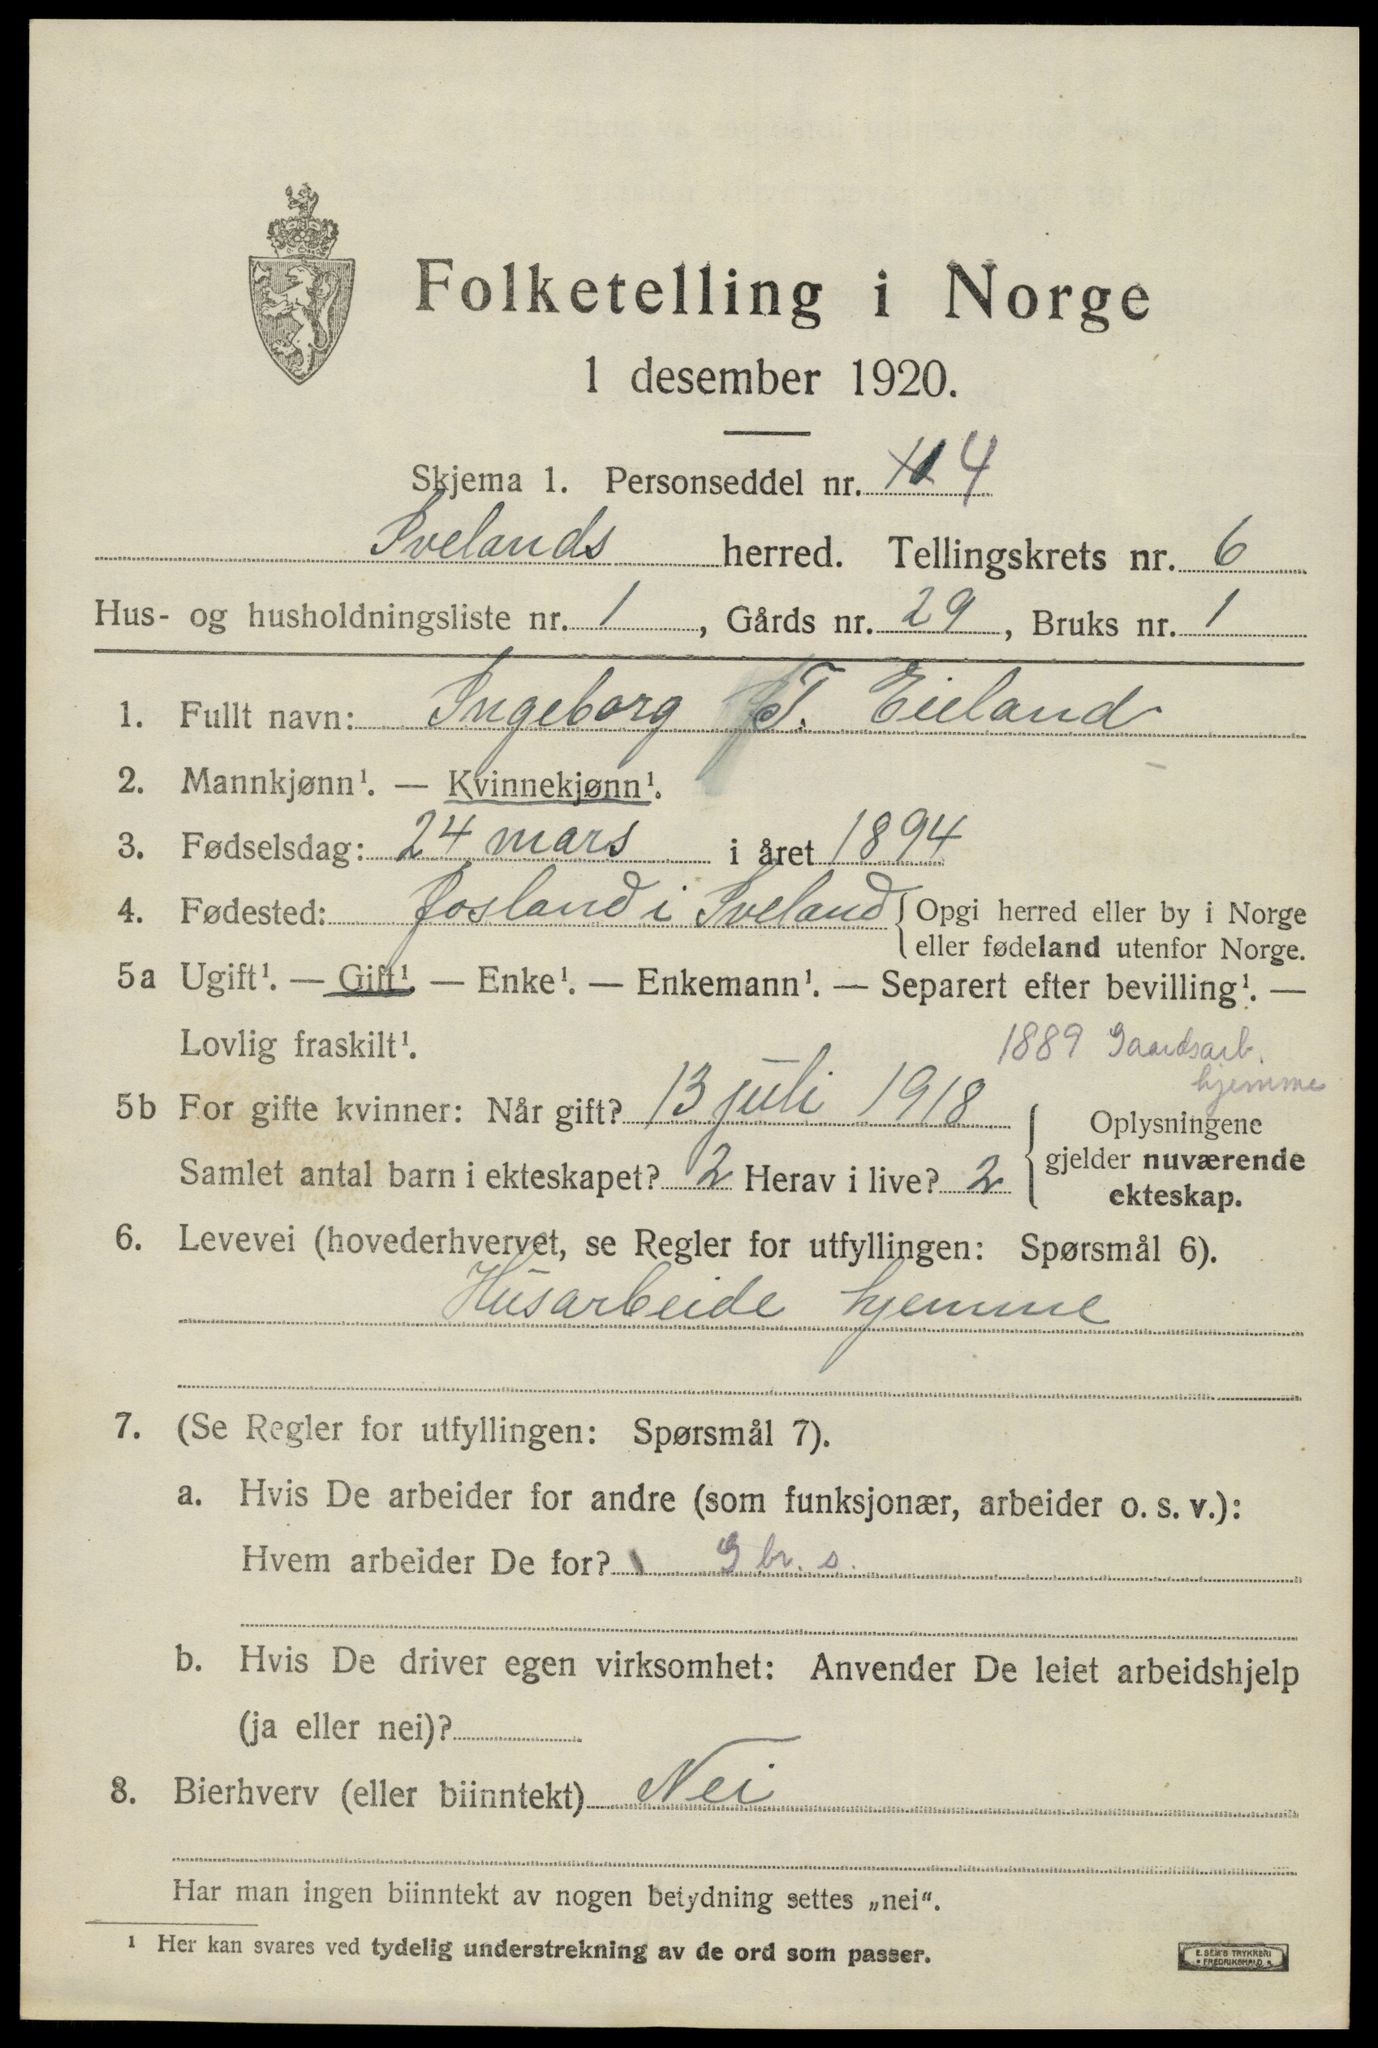 Folketelling i Norge
1 desember 1920.
Skjema 1. Personseddel nr. 4
Ivelands herred. Tellingskrets nr. 6
Hus- og husholdningsliste nr. 1, Gårds nr. 29, Bruks nr. 1
1. Fullt navn: Ingeborg T. Eieland
2. Mannkjønn¹. — Kvinnekjønn¹.
3. Fødselsdag: 24 mars i året 1894
4. Fødested: Josland i Iveland {Opgi herred eller by i Norge
eller fødeland utenfor Norge.
5a Ugift¹. — Gift¹. — Enke¹. — Enkemann¹. — Separert efter bevilling¹. —
Lovlig fraskilt¹.
1889 Gaardsarb.
hjemme
5b For gifte kvinner: Når gift? 13 juli 1918
Samlet antal barn i ekteskapet? 2 Herav i live? 2
{Oplysningene
gjelder nuværende
ekteskap.
6. Levevei (hovederhvervet, se Regler for utfyllingen: Spørsmål 6).
Husarbeide hjemme
7. (Se Regler for utfyllingen: Spørsmål 7).
a. Hvis De arbeider for andre (som funksjonær, arbeider o. s. v.):
Hvem arbeider De for? G br. s.
b. Hvis De driver egen virksomhet: Anvender De leiet arbeidshjelp
(ja eller nei)?
8. Bierhverv (eller biinntekt) Nei
Har man ingen biinntekt av nogen betydning settes „nei“.
¹ Her kan svares ved tydelig understrekning av de ord som passer.
E. SEM'S TRYKKERI
FREDRIKSHALD